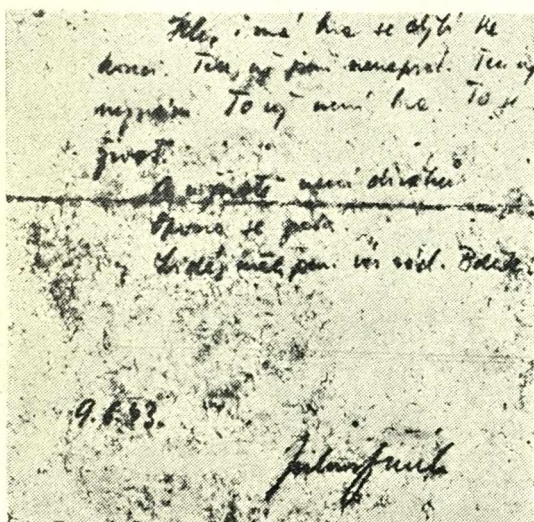 i má hra se chýlí ke
konci. Ten už jsem nenapsal. Ten už
neznám. To už není hra. To je
život.
A v životě není diváků.
Opona se zvedá.
Lidé, měl jsem vás rád. Bděte!
9.6.43.
Julius Fučík